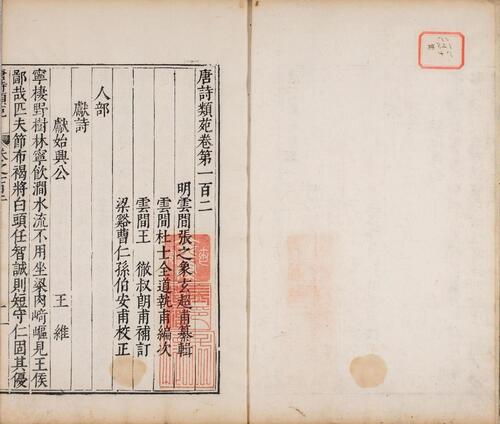 唐詩類苑卷第一百二
明雲間張之象玄超甫纂輯
雲間杜士全道執甫編次
雲間王徹叔朗甫補訂
梁谿曹仁孫伯安甫校正
人部
獻詩
獻始興公 王維
寧棲野樹林寧飲澗水流不用坐粱肉崎嶇見王侯
鄙哉匹夫節布褐將白頭任智誠則短守仁固其優
唐詩類苑